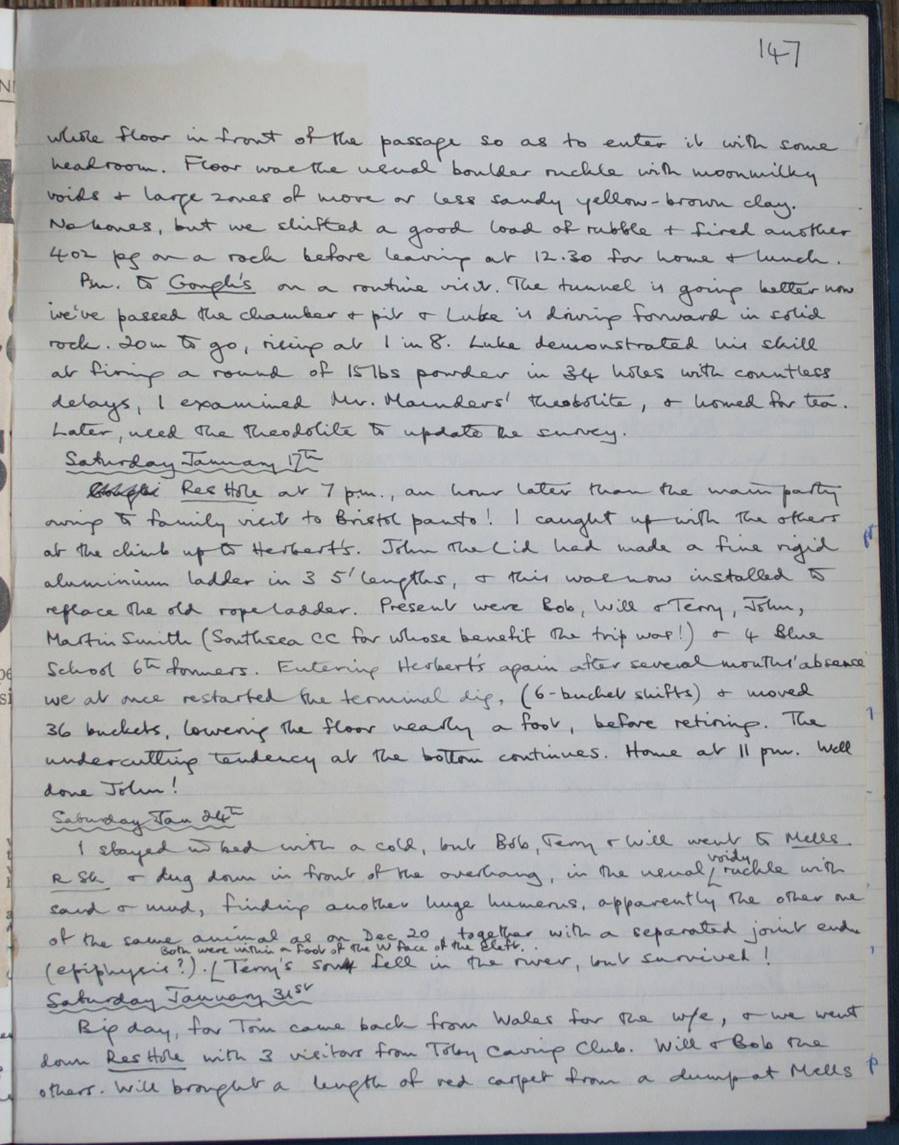 147
whole floor in front of the passage so as to enter it with some
headroom. Floor was the usual boulder ruckle with moonmilky
voids + large zones of more or less sandy yellow-brown clay.
No bones, but we shifted a good load of rubble + fired another
4oz pg on a rock before leaving at 12.30 for home + lunch.
Pm. to Gough's on a routine visit. The tunnel is going better now
we've passed the chamber + pit + Luke is driving forward in solid
rock. 20m to go, rising at 1 in 8. Luke demonstrated his skill
at firing a round of 15 lbs powder in 34 holes with countless
delays, I examined Mr. Maunders' theodolite, + homed for tea.
Later, used the theodolite to update the survey.
Saturday January 17th
Res Hole at 7 p.m., an hour later than the main party
owing to family visit to Bristol panto! I caught up with the others
at the climb up to Herbert's. John the Lid had made a fine rigid
aluminium ladder in 3 5' lengths, + this was now installed to
replace the old rope ladder. Present were Bob, Will + Terry, John,
Martin Smith (Southsea CC for whose benefit the trip was!) + 4 Blue
School 6th formers. Entering Herbert's again after several months' absence
we at once restarted the terminal dig, (6-bucket shifts) + moved
36 buckets, lowering the floor nearly a foot, before retiring. The
undercutting tendency at the bottom continues. Home at 11 pm. Well
done John!
Saturday Jan 24th
I stayed in bed with a cold, but Bob, Terry + Will went to Mells
R Sh + dug down in front of the overhang, in the usual voidy ruckle with
sand + mud, finding another huge humerus, apparently the other one
of the same animal as on Dec 20 together with a separated joint end
(epiphysis?). Both were within a foot of the W face of the cleft. Terry's son fell in the river, but survived!
Saturday January 31st
Big day, for Tom came back from Wales for the w/e, + we went
down Res Hole with 3 visitors from Toby Caving Club. Will + Bob the
others. Will brought a length of red carpet from a dump at Mells